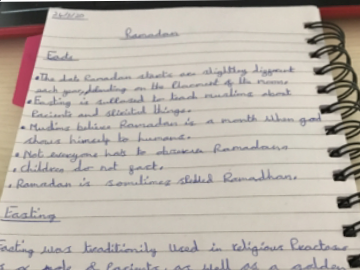 Ramadan
Facts
• The date Ramadan starts are slightly different
each year, depending on the placement of the moon.
• Fasting is suffosed to teach muslims about
Patients and spirital things.
• Muslims believe Ramadan is a month when god
shows himself to humans.
• Not everyone has to observe Ramadan.
• Children do not fast.
• Ramadan is sometimes spelled Ramadhan.
Fasting
Fasting was traditionily used in religious Practose
as a mark of Patients, as well as a golden